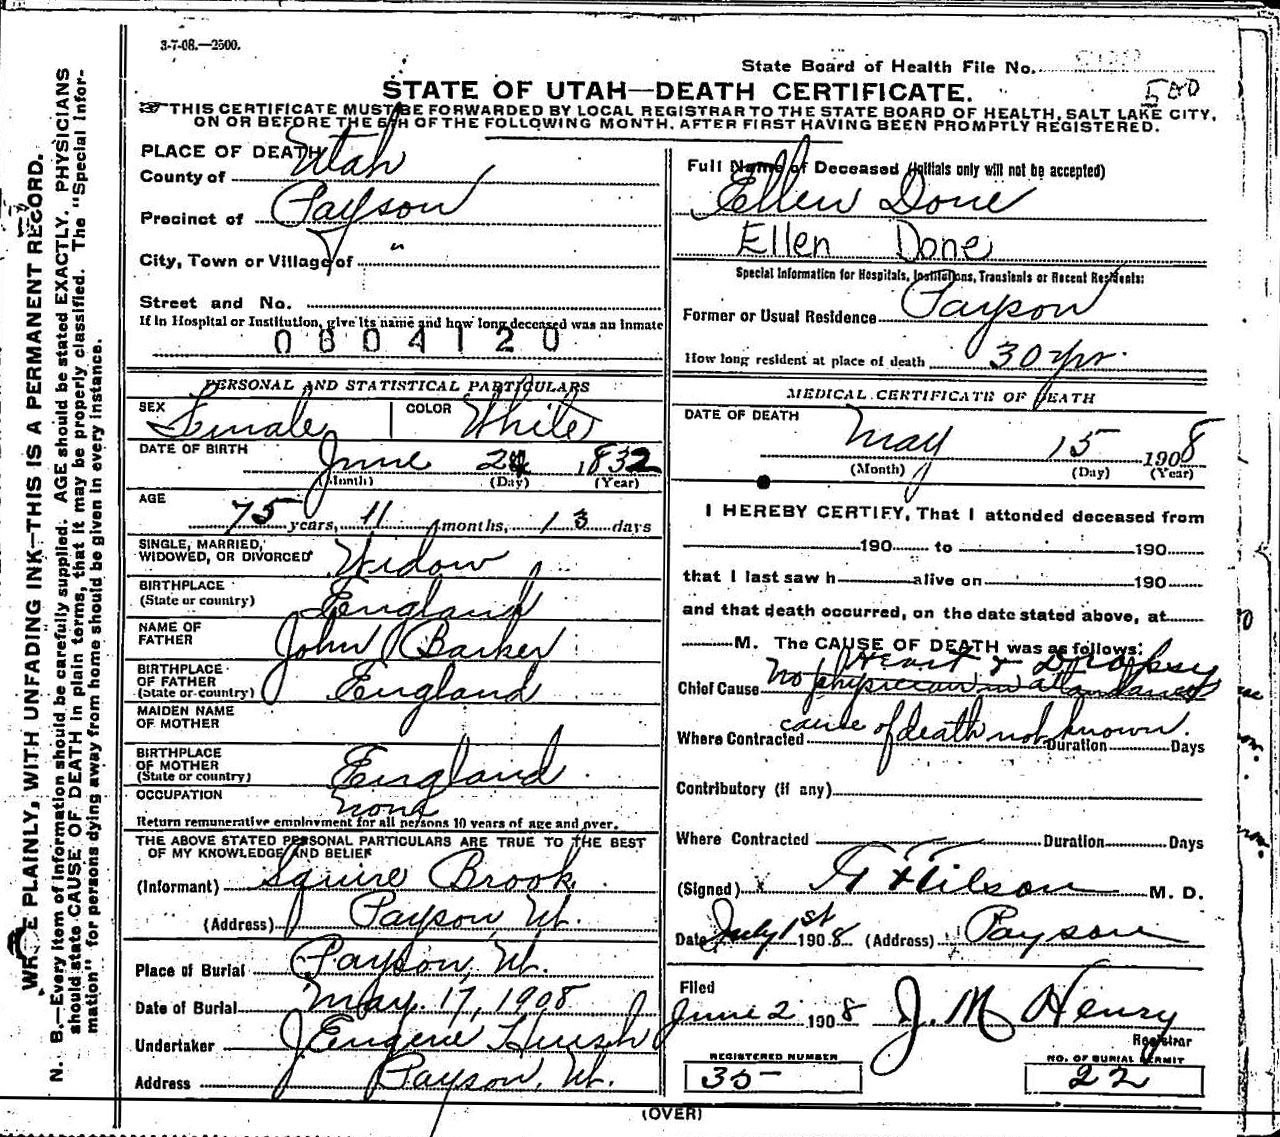 3-7-08.—2500.
State Board of Health File No.
500
STATE OF UTAH—DEATH CERTIFICATE.
THIS CERTIFICATE MUST BE FORWARDED BY LOCAL REGISTRAR TO THE STATE BOARD OF HEALTH, SALT LAKE CITY,
ON OR BEFORE THE 5TH OF THE FOLLOWING MONTH, AFTER FIRST HAVING BEEN PROMPTLY REGISTERED.
WRITE PLAINLY, WITH UNFADING INK—THIS IS A PERMANENT RECORD.
N. B.—Every item of information should be carefully supplied. AGE should be stated EXACTLY. PHYSICIANS
should state CAUSE OF DEATH in plain terms, that it may be properly classified. The "Special Infor-
mation" for persons dying away from home should be given in every instance.
PLACE OF DEATH
County of Utah
Precinct of Payson
City, Town or Village of "
Street and No.
If in Hospital or Institution, give its name and how long deceased was an inmate
0804120
PERSONAL AND STATISTICAL PARTICULARS
SEX Female COLOR White
DATE OF BIRTH June 24 1832
(Month) (Day) (Year)
AGE 75 years, 11 months, 13 days
SINGLE, MARRIED,
WIDOWED, OR DIVORCED Widow
BIRTHPLACE
(State or country) England
NAME OF
FATHER John Barker
BIRTHPLACE
OF FATHER
(State or country) England
MAIDEN NAME
OF MOTHER
BIRTHPLACE
OF MOTHER
(State or country) England
OCCUPATION none
Return remunerative employment for all persons 10 years of age and over.
THE ABOVE STATED PERSONAL PARTICULARS ARE TRUE TO THE BEST
OF MY KNOWLEDGE AND BELIEF
(Informant) Squire Brook
(Address) Payson, Ut.
Place of Burial Payson, Ut.
Date of Burial May. 17, 1908
Undertaker J Eugene Huish
Address Payson, Ut.
Full Name of Deceased (Initials only will not be accepted)
Ellen Done
Ellen Done
Special Information for Hospitals, Institutions, Transients or Recent Residents:
Former or Usual Residence Payson
How long resident at place of death 30 yr.
MEDICAL CERTIFICATE OF DEATH
DATE OF DEATH
May 15 1908
(Month) (Day) (Year)
I HEREBY CERTIFY, That I attended deceased from
190 to 190
that I last saw h alive on 190
and that death occurred, on the date stated above, at
M. The CAUSE OF DEATH was as follows:
Heart & Dropsy
Chief Cause No physician in attendance
cause of death not known.
Where Contracted Duration Days
Contributory (if any)
Where Contracted Duration Days
(Signed) x Tilson M. D.
Date July 1st 1908 (Address) Payson
Filed
June 2 1908 J. M Henry
Registrar
REGISTERED NUMBER
35
NO. OF BURIAL PERMIT
22
(OVER)